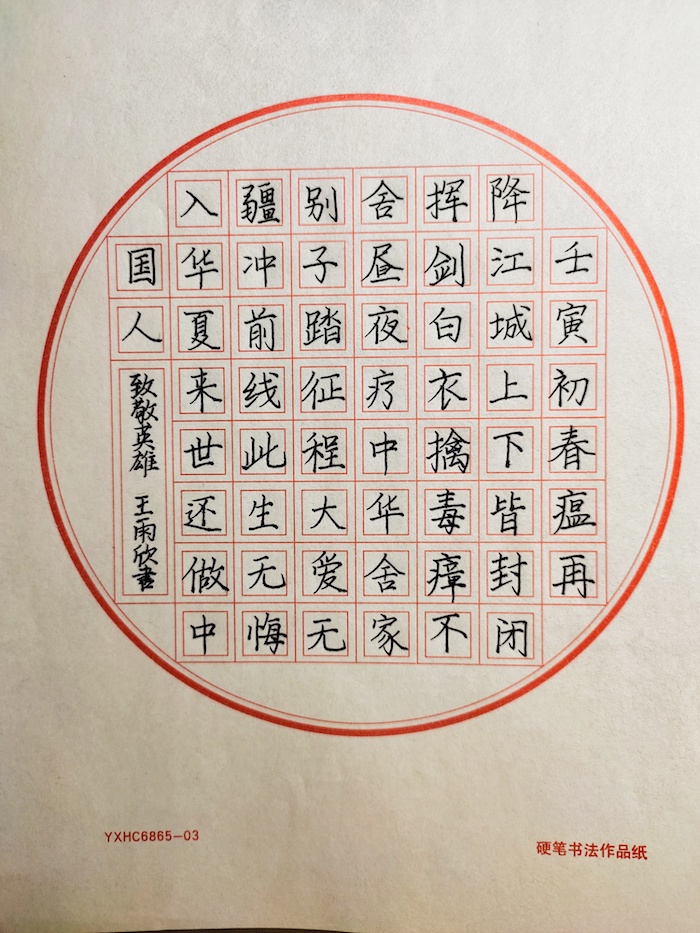 壬寅初春瘟再
降江城上下皆封闭
挥剑白衣擒毒瘴不
舍昼夜疗中华舍家
别子踏征程大爱无
疆冲前线此生无悔
入华夏来世还做中
国人
致敬英雄 王雨欣书
YXHC6865-03
硬笔书法作品纸